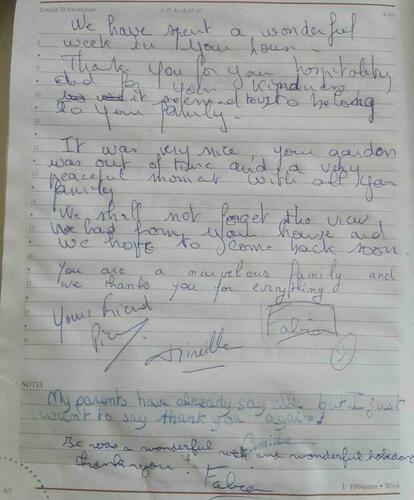 We have spent a wonderful
week in your house.
Thank you for your hospitality
and for your kindness
it seemed to us to belong
to your family.
It was very nice your garden
was out of time and a very
peaceful moment with all your
family
We shall not forget the view
We had from your house and
we hope to come back soon.
You are a marvelous family and
we thanks you for everything.
Your friend
Fabien
NOTES
My parents have already say all but I just
want to say thank you again!
Camille
It was a wonderful week and wonderful holidays
thank you
Fabien
Week